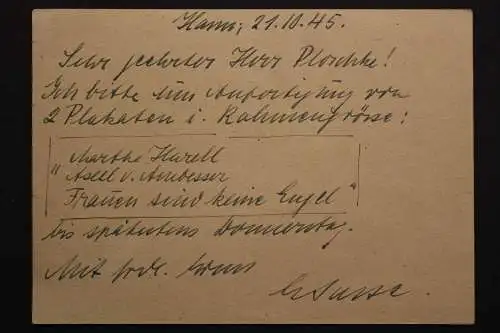 Hann; 21.10.45.
Sehr geehrter Herr Ploschke!
Ich bitte um Anfertigung von
2 Plakaten i. Rahmengrösse:
"Marthe Harell
Axel v. Ambesser
Frauen sind keine Engel"
bis spätestens Donnerstag.
Mit frdl. Gruss